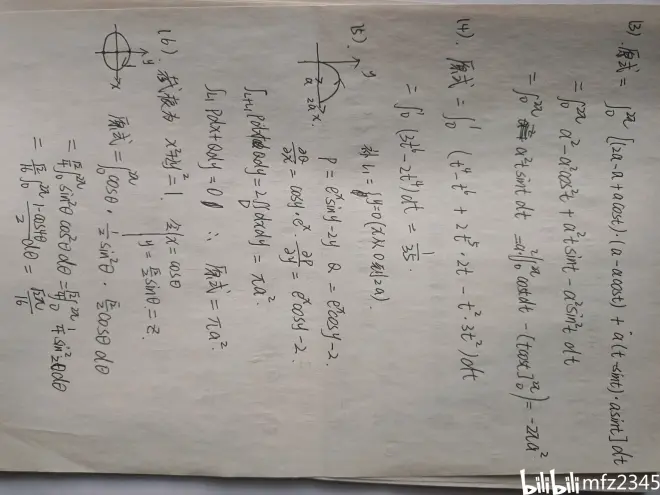 (3). 原式 = ∫₀^{2π} [(2a-a+acost)·(a-acost) + a(t-sint)·asint] dt
= ∫₀^{2π} a²-a²cos²t + a²tsint - a²sin²t dt
= ∫₀^{2π} a²tsint dt = a²(∫₀^{2π} costdt - [tcost]₀^{2π}) = -2πa²
(4). 原式 = ∫₀¹ (t⁴-t⁶ + 2t⁵·2t - t²·3t²) dt
= ∫₀¹ (3t⁶-2t⁴) dt = 1/35.
(5).
y
a 2a x
L₁ = { y=0 (x从0到2a).
P = eˣsiny-2y Q = eˣcosy-2.
∂Q/∂x = cosy·eˣ ∂P/∂y = eˣcosy-2.
∫_{L+L₁} Pdx+Qdy = 2∬dxdy = πa².
∫_{L₁} Pdx+Qdy = 0 ∴ 原式 = πa².
(6). x²+y²=1. 令{ x = cosθ
y = √2/2 sinθ = z.
y
x
原式 = ∫₀^{2π} cosθ · 1/2 sin²θ · √2/2 cosθ dθ
= √2/4 ∫₀^{2π} sin²θcos²θdθ = √2/4 ∫₀^{2π} 1/4 sin²2θdθ
= √2/16 ∫₀^{2π} (1-cos4θ)/2 dθ = √2π/16
bilibili mfz2345